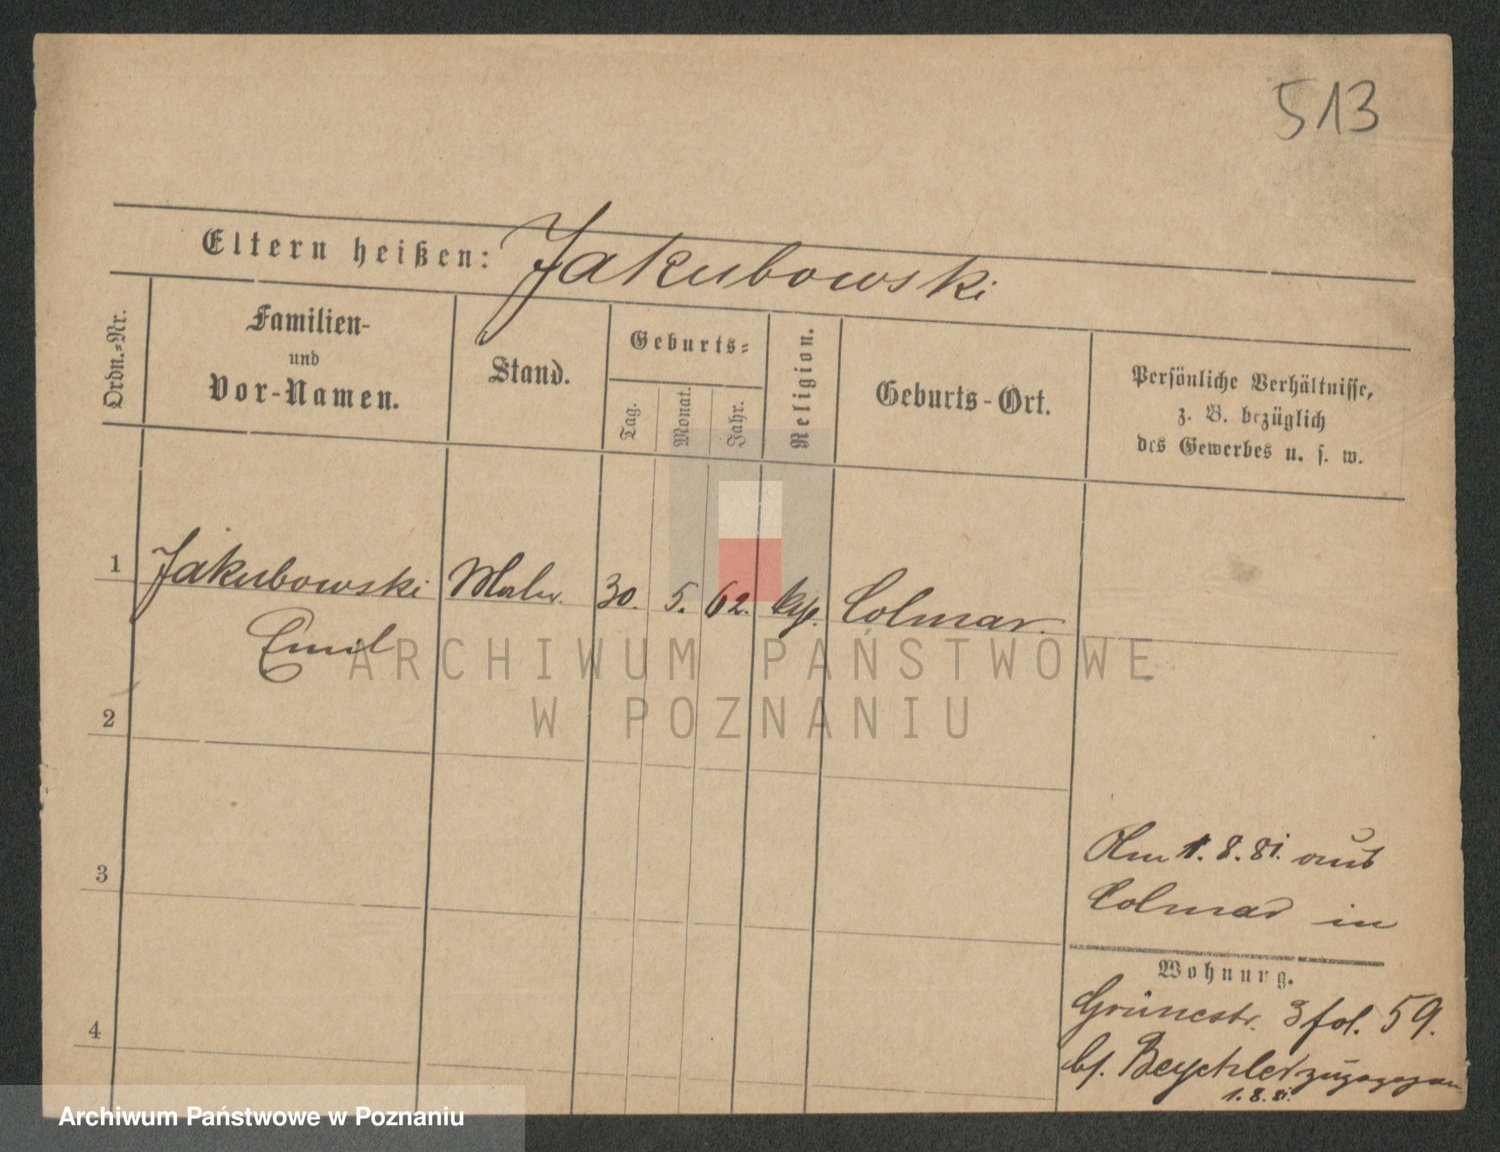 513
Eltern heißen: Jakubowski
Ordn.=Nr.
Familien-
und
Vor-Namen.
Stand.
Geburts=
Tag.
Monat.
Jahr.
Religion.
Geburts-Ort.
Persönliche Verhältnisse,
z. B. bezüglich
des Gewerbes u. s. w.
1 Jakubowski Maler. 30. 5. 62. Colmar.
Emil
ARCHIWUM PAŃSTWOWE
W POZNANIU
2
3
4
Am 1. 8. 81. aus
Colmar in
Wohnung.
Grünestr. 3 fol. 59.
bs. zugezogen
1. 8. 81.
Archiwum Państwowe w Poznaniu